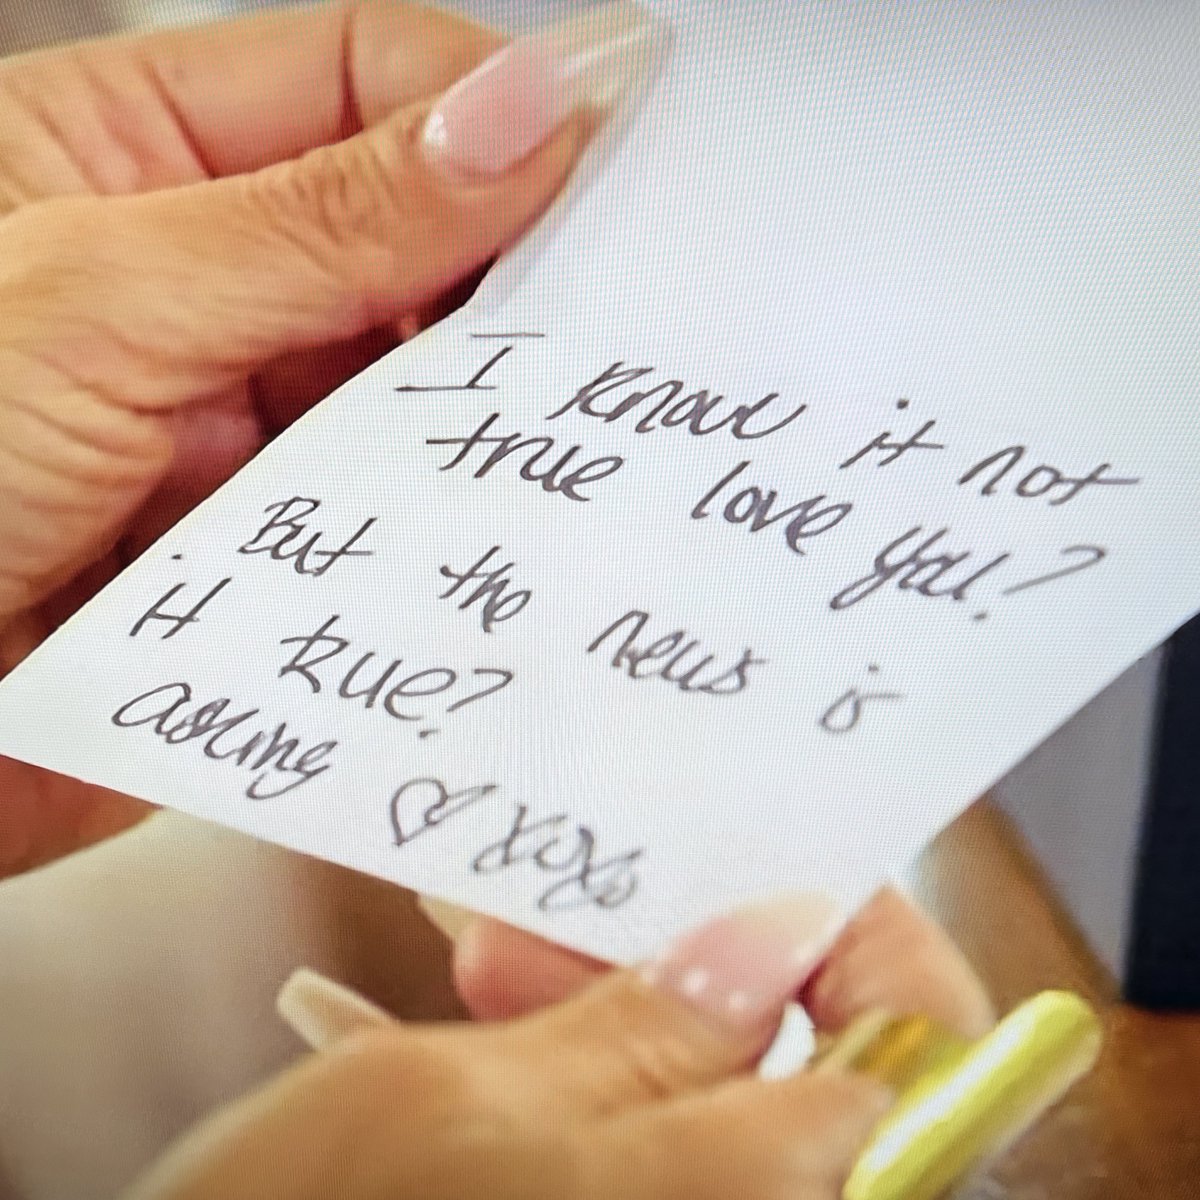 I know it not
true love you!?
But the news is
it true?
asking ♡ xoxo